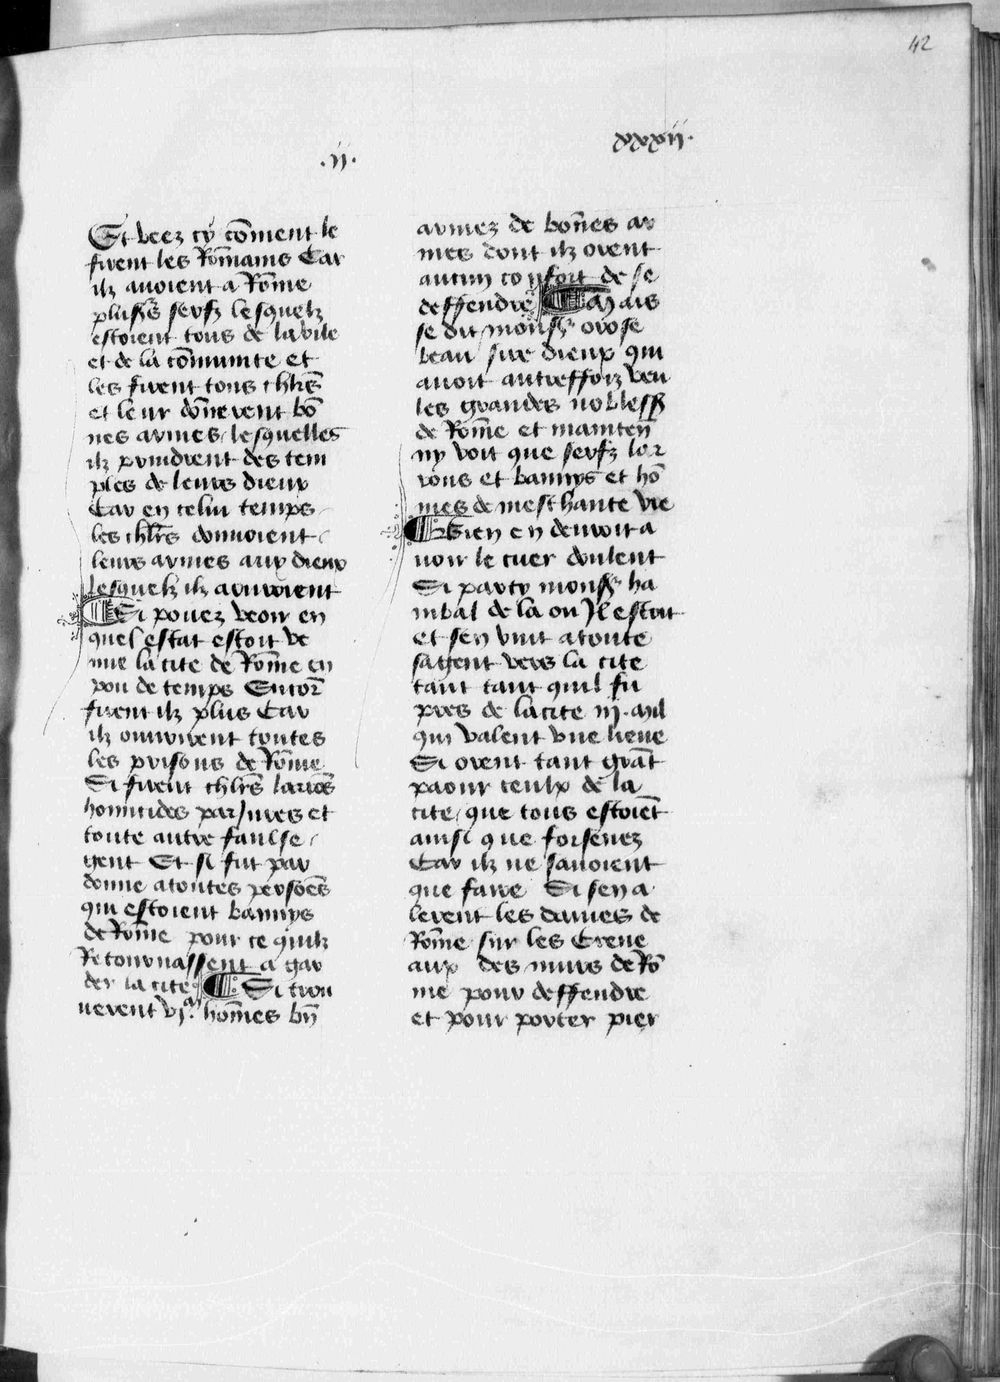 42
.ii.
xxxii.
Et veez cy co͞ment le
firent les Ro͞mains Car
ilz auoient a Ro͞me
plus͛s serfz lesquelz
estoient tous de la ville
et de la co͞munite et
les firent tous ch͞lrs
et leur do͞nerent bo͞
nes armes / lesquelles
ilz prindrent des tem
ples de leurs dieux
Car en celui temps
les ch͞lrs donnoient
leurs armes aux dieux
lesquelz ilz aouroient
¶ Si pouez veoir en
quel estat estoit ve
nue la cite de Ro͞me en
pou de temps Encor͛
firent ilz plus Car
ilz ouurirent toutes
les prisons de Ro͞me
Si firent ch͞lrs larro͞s
homicides pariures et
toute autre faulse
gent Et si fut par
donne a toutes perso͞es
qui estoient bannys
de Ro͞me pour ce quilz
Retournassent a gar
der la cite ¶ Si trou
uerent vj.ᵃ ho͞mes bn͞
armez de bo͞nes ar
mes dont ilz orent
aucun confort de se
deffendre ¶ Mais
se dit mons͛ orose
beau sire dieux qui
auoit autreffoiz veu
les grandes nobless͛
de Ro͞me et mainten͞
ny voit que serfz lar
rons et bannys et ho͞
mes de meschante vie
¶ Bien en deuoit a
uoir le cuer doulent
Si party mons͛ ha
nibal de la ou Il estoit
et sen vint a toute
sa gent vers la cite
tant tant quil fu
pres de la cite iij. mil
qui valent vne lieue
Si orent tant gra͞t
paour ceulx de la
cite / que tous estoie͞t
ainsi que forsenez
Car ilz ne sauoient
que faire Si sen a
lerent les dames de
Ro͞me sur les Crene
aux des murs de Ro͞
me pour deffendre
et pour porter pier